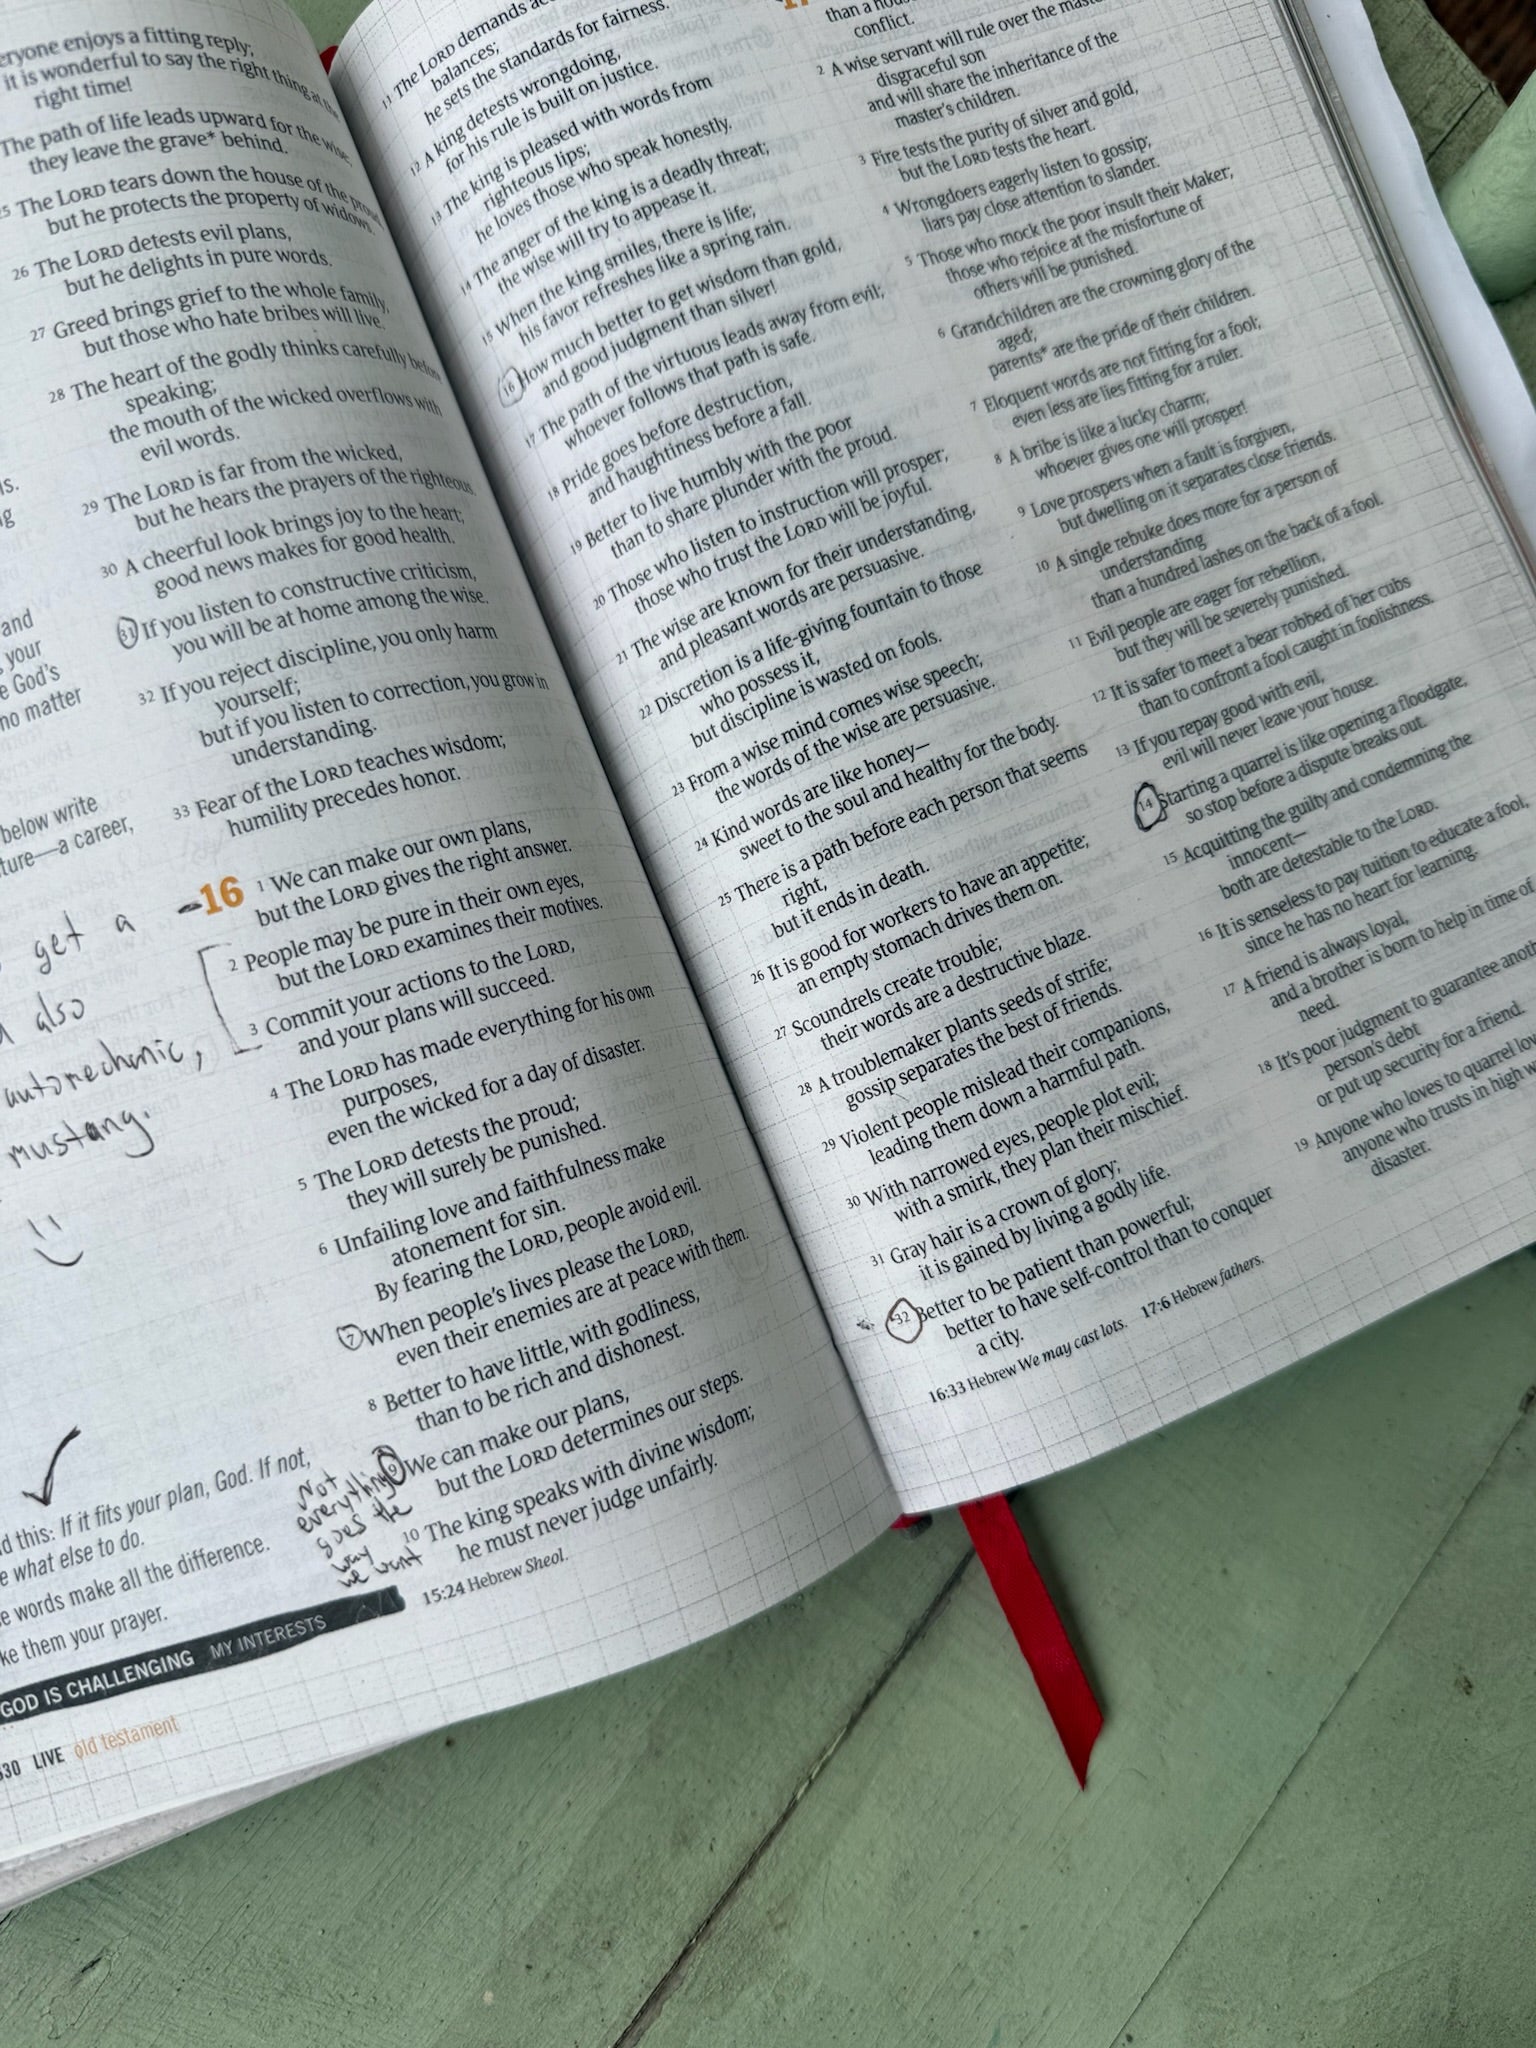 eryone enjoys a fitting reply;
it is wonderful to say the right thing at the
right time!
The path of life leads upward for the wise;
they leave the grave* behind.
25 The LORD tears down the house of the proud,
but he protects the property of widows.
26 The LORD detests evil plans,
but he delights in pure words.
27 Greed brings grief to the whole family,
but those who hate bribes will live.
28 The heart of the godly thinks carefully before
speaking;
the mouth of the wicked overflows with
evil words.
29 The LORD is far from the wicked,
but he hears the prayers of the righteous.
30 A cheerful look brings joy to the heart;
good news makes for good health.
31 If you listen to constructive criticism,
you will be at home among the wise.
32 If you reject discipline, you only harm
yourself;
but if you listen to correction, you grow in
understanding.
33 Fear of the LORD teaches wisdom;
humility precedes honor.
16 1 We can make our own plans,
but the LORD gives the right answer.
2 People may be pure in their own eyes,
but the LORD examines their motives.
3 Commit your actions to the LORD,
and your plans will succeed.
4 The LORD has made everything for his own
purposes,
even the wicked for a day of disaster.
5 The LORD detests the proud;
they will surely be punished.
6 Unfailing love and faithfulness make
atonement for sin.
By fearing the LORD, people avoid evil.
7 When people's lives please the LORD,
even their enemies are at peace with them.
8 Better to have little, with godliness,
than to be rich and dishonest.
9 We can make our plans,
but the LORD determines our steps.
10 The king speaks with divine wisdom;
he must never judge unfairly.
15:24 Hebrew Sheol.
Not
everything
goes the
way
we want
ls.
and
, your
e God's
no matter
below write
ture—a career,
get a
also
automechanic,
mustang.
d this: If it fits your plan, God. If not,
e what else to do.
se words make all the difference.
ke them your prayer.
GOD IS CHALLENGING MY INTERESTS
30 LIVE old testament
11 The LORD demands
balances;
he sets the standards for fairness.
12 A king detests wrongdoing,
for his rule is built on justice.
13 The king is pleased with words from
righteous lips;
he loves those who speak honestly.
14 The anger of the king is a deadly threat;
the wise will try to appease it.
15 When the king smiles, there is life;
his favor refreshes like a spring rain.
16 How much better to get wisdom than gold,
and good judgment than silver!
17 The path of the virtuous leads away from evil;
whoever follows that path is safe.
18 Pride goes before destruction,
and haughtiness before a fall.
19 Better to live humbly with the poor
than to share plunder with the proud.
20 Those who listen to instruction will prosper;
those who trust the LORD will be joyful.
21 The wise are known for their understanding,
and pleasant words are persuasive.
22 Discretion is a life-giving fountain to those
who possess it,
but discipline is wasted on fools.
23 From a wise mind comes wise speech;
the words of the wise are persuasive.
24 Kind words are like honey—
sweet to the soul and healthy for the body.
25 There is a path before each person that seems
right,
but it ends in death.
26 It is good for workers to have an appetite;
an empty stomach drives them on.
27 Scoundrels create trouble;
their words are a destructive blaze.
28 A troublemaker plants seeds of strife;
gossip separates the best of friends.
29 Violent people mislead their companions,
leading them down a harmful path.
30 With narrowed eyes, people plot evil;
with a smirk, they plan their mischief.
31 Gray hair is a crown of glory;
it is gained by living a godly life.
32 Better to be patient than powerful;
better to have self-control than to conquer
a city.
16:33 Hebrew We may cast lots. 17:6 Hebrew fathers.
than a
conflict.
2 A wise servant will rule over the
disgraceful son
and will share the inheritance of the
master's children.
3 Fire tests the purity of silver and gold,
but the LORD tests the heart.
4 Wrongdoers eagerly listen to gossip;
liars pay close attention to slander.
5 Those who mock the poor insult their Maker;
those who rejoice at the misfortune of
others will be punished.
6 Grandchildren are the crowning glory of the
aged;
parents* are the pride of their children.
7 Eloquent words are not fitting for a fool;
even less are lies fitting for a ruler.
8 A bribe is like a lucky charm;
whoever gives one will prosper!
9 Love prospers when a fault is forgiven,
but dwelling on it separates close friends.
10 A single rebuke does more for a person of
understanding
than a hundred lashes on the back of a fool.
11 Evil people are eager for rebellion,
but they will be severely punished.
12 It is safer to meet a bear robbed of her cubs
than to confront a fool caught in foolishness.
13 If you repay good with evil,
evil will never leave your house.
14 Starting a quarrel is like opening a floodgate,
so stop before a dispute breaks out.
15 Acquitting the guilty and condemning the
innocent—
both are detestable to the LORD.
16 It is senseless to pay tuition to educate a fool,
since he has no heart for learning.
17 A friend is always loyal,
and a brother is born to help in time of
need.
18 It's poor judgment to guarantee anot
person's debt
or put up security for a friend.
19 Anyone who loves to quarrel lov
anyone who trusts in high w
disaster.